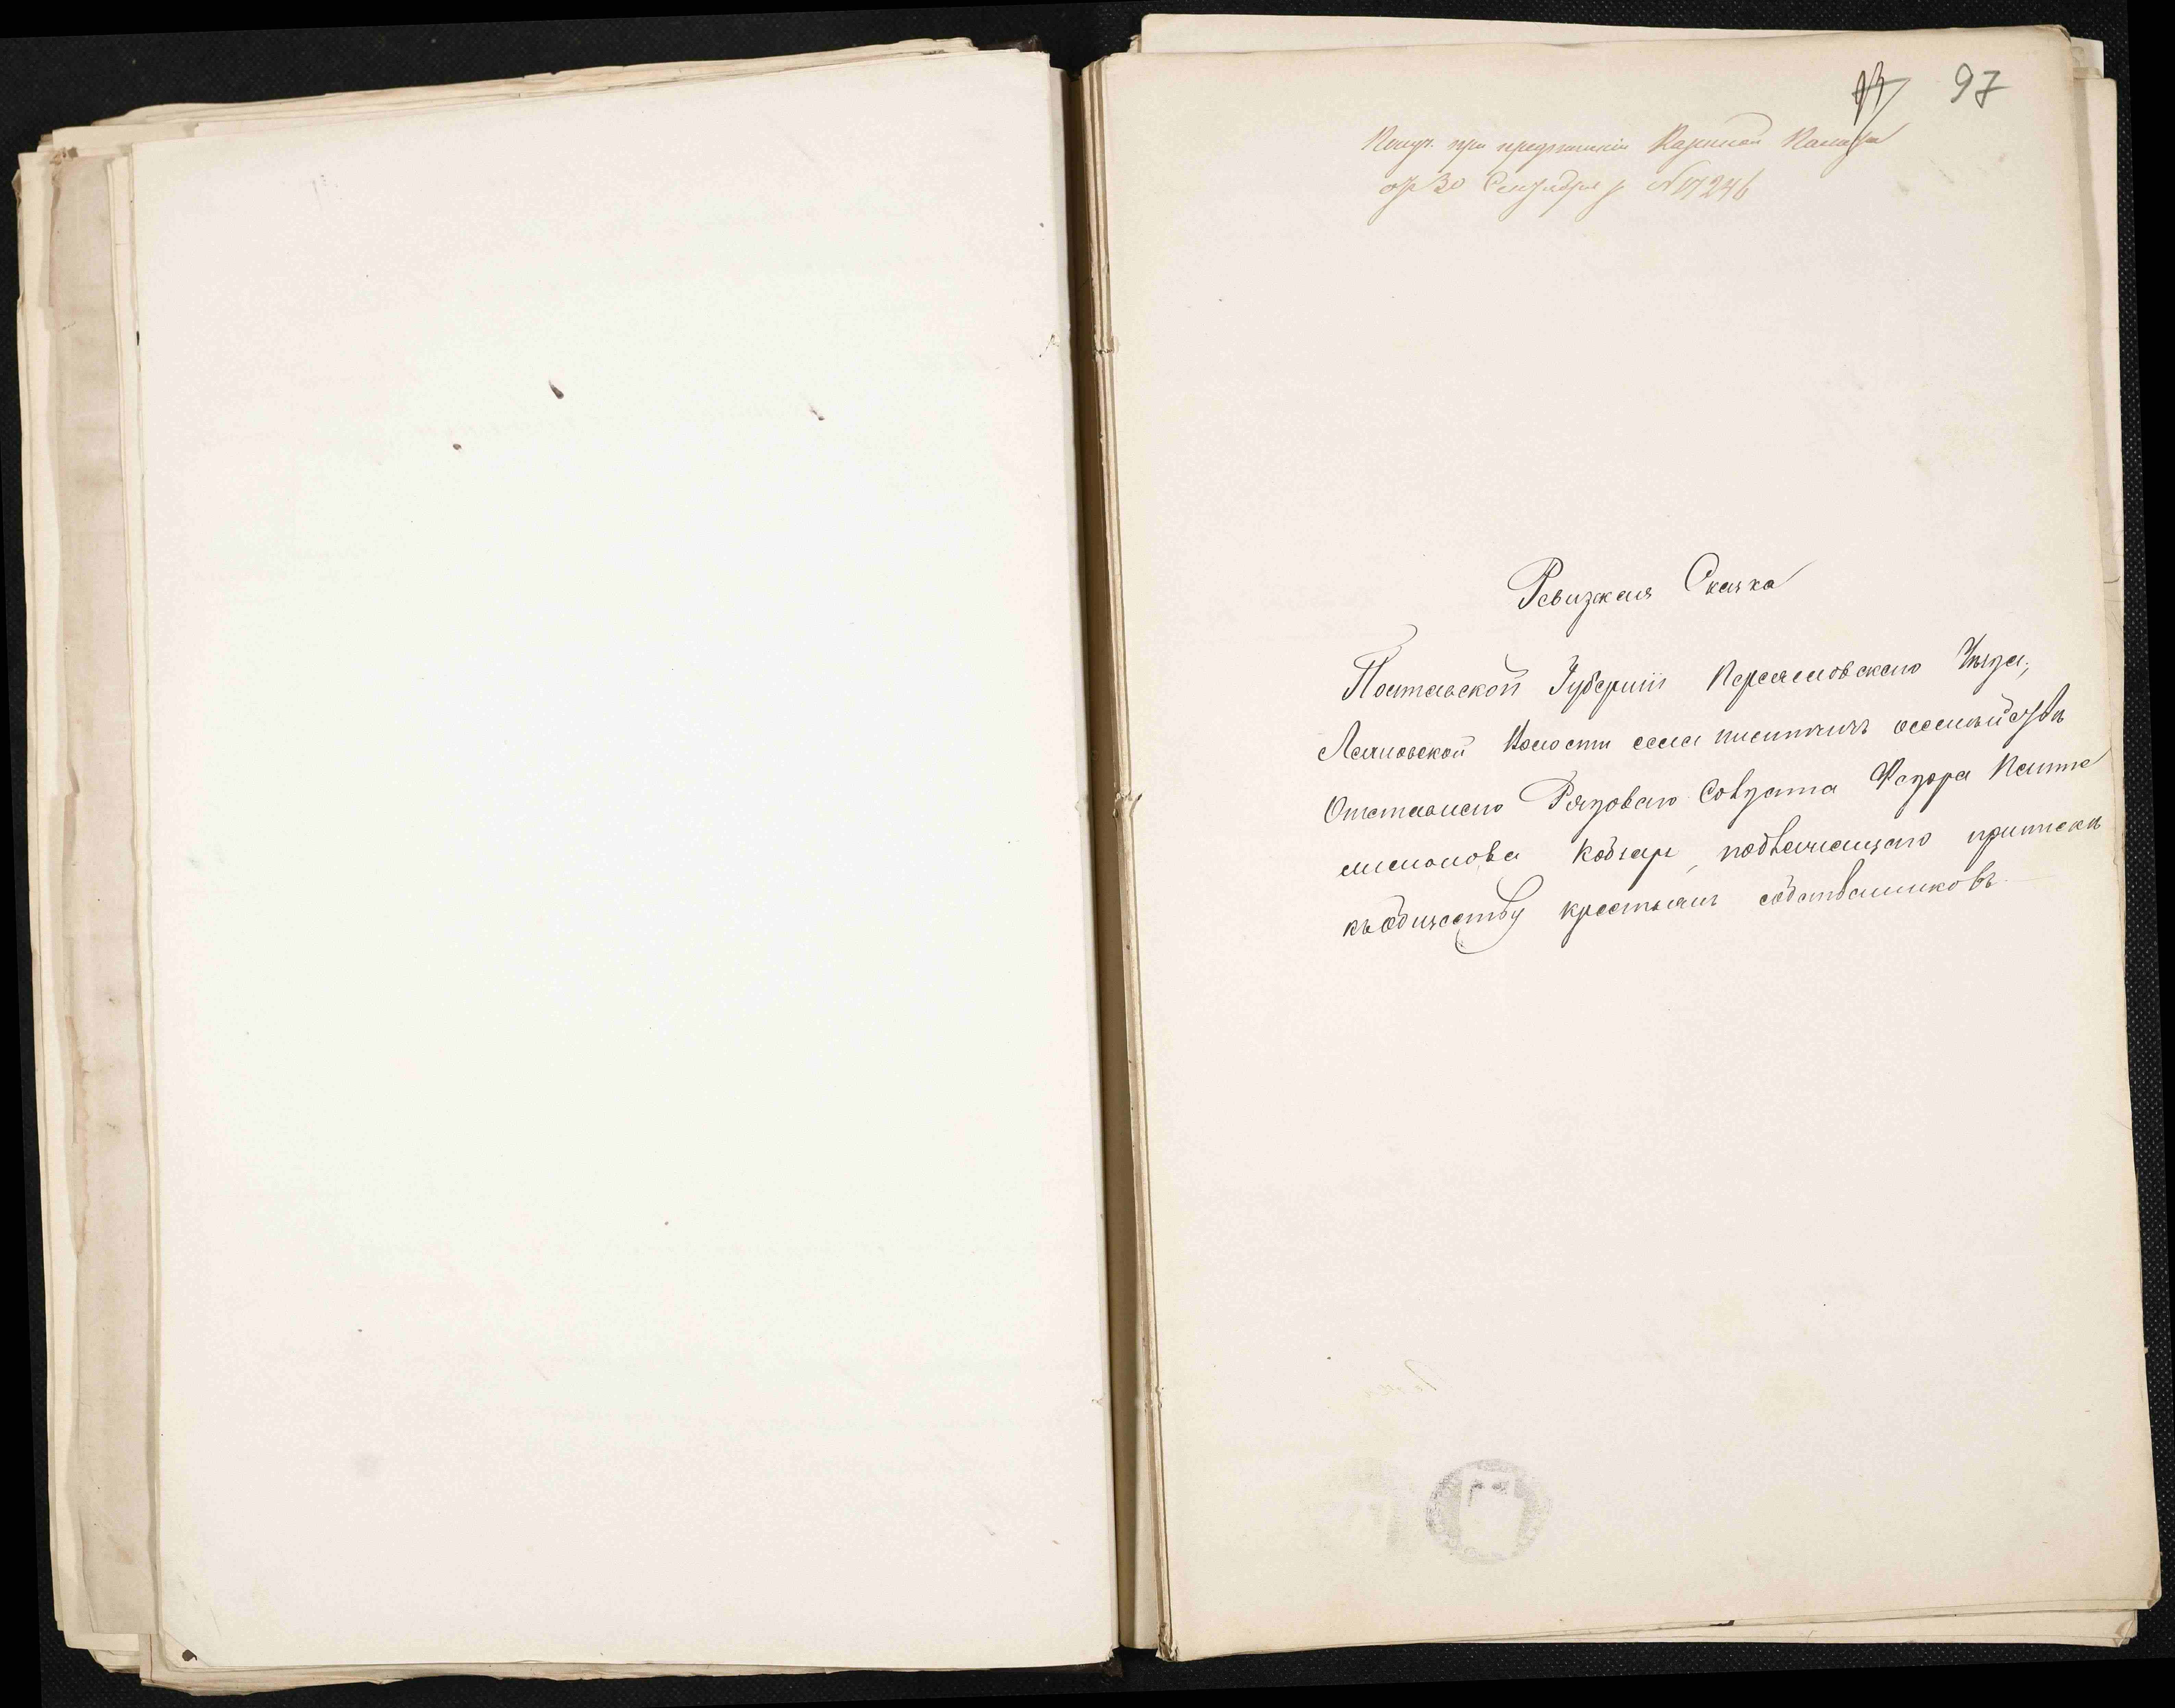 97
при предписаніи Казенной Палаты
отъ 30 Сентября № 17246
Ревизская Сказка
Полтавской Губерніи Переяславскаго Уѣзда,
Волости села о семействѣ
Отставнаго Рядоваго Солдата Федора Панте
лимонова Кобзаря, подлежащаго припискѣ
къ обществу крестьянъ собственниковъ.